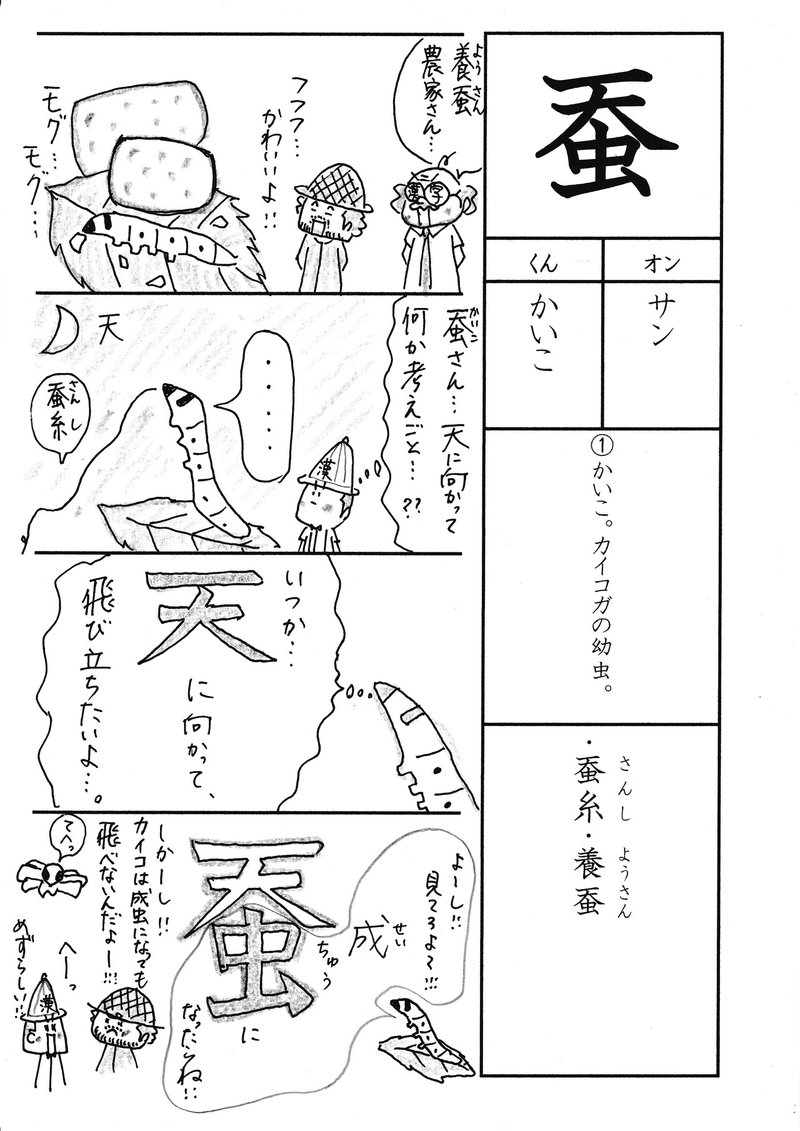 蚕
オン
くん
サン
かいこ
①かいこ。カイコガの幼虫。
さんし
ようさん
・蚕糸・養蚕
ようさん
養蚕
農家さん…
漢字
フフフ…
かわいいよ!!
モグ…
モグ…
かいこ
蚕さん…天に向かって
何か考えごと…??
漢
・・・・・・
天
さんし
蚕糸
いつか…
天
に向かって、
飛び立ちたいよ…。
よーし!!
見てろよ〜!!!
せい
成
ちゅう
蚕
に
なったらね!!
しかーし!!
カイコは成虫になっても
飛べないんだよー!!!
てへっ
へーっ
めずらしい!!
漢